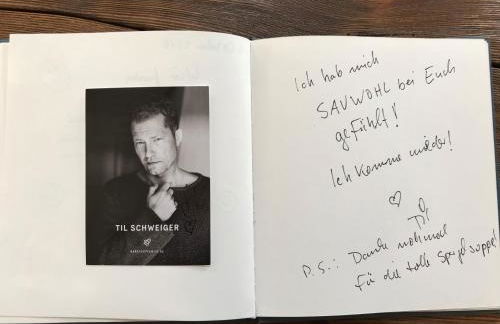 TIL SCHWEIGER
Ich hab mich
SAUWOHL bei Euch
gefühlt!
Ich komme wieder!
Til
P.S.: Danke nochmal
für die tolle Spargelsuppe!